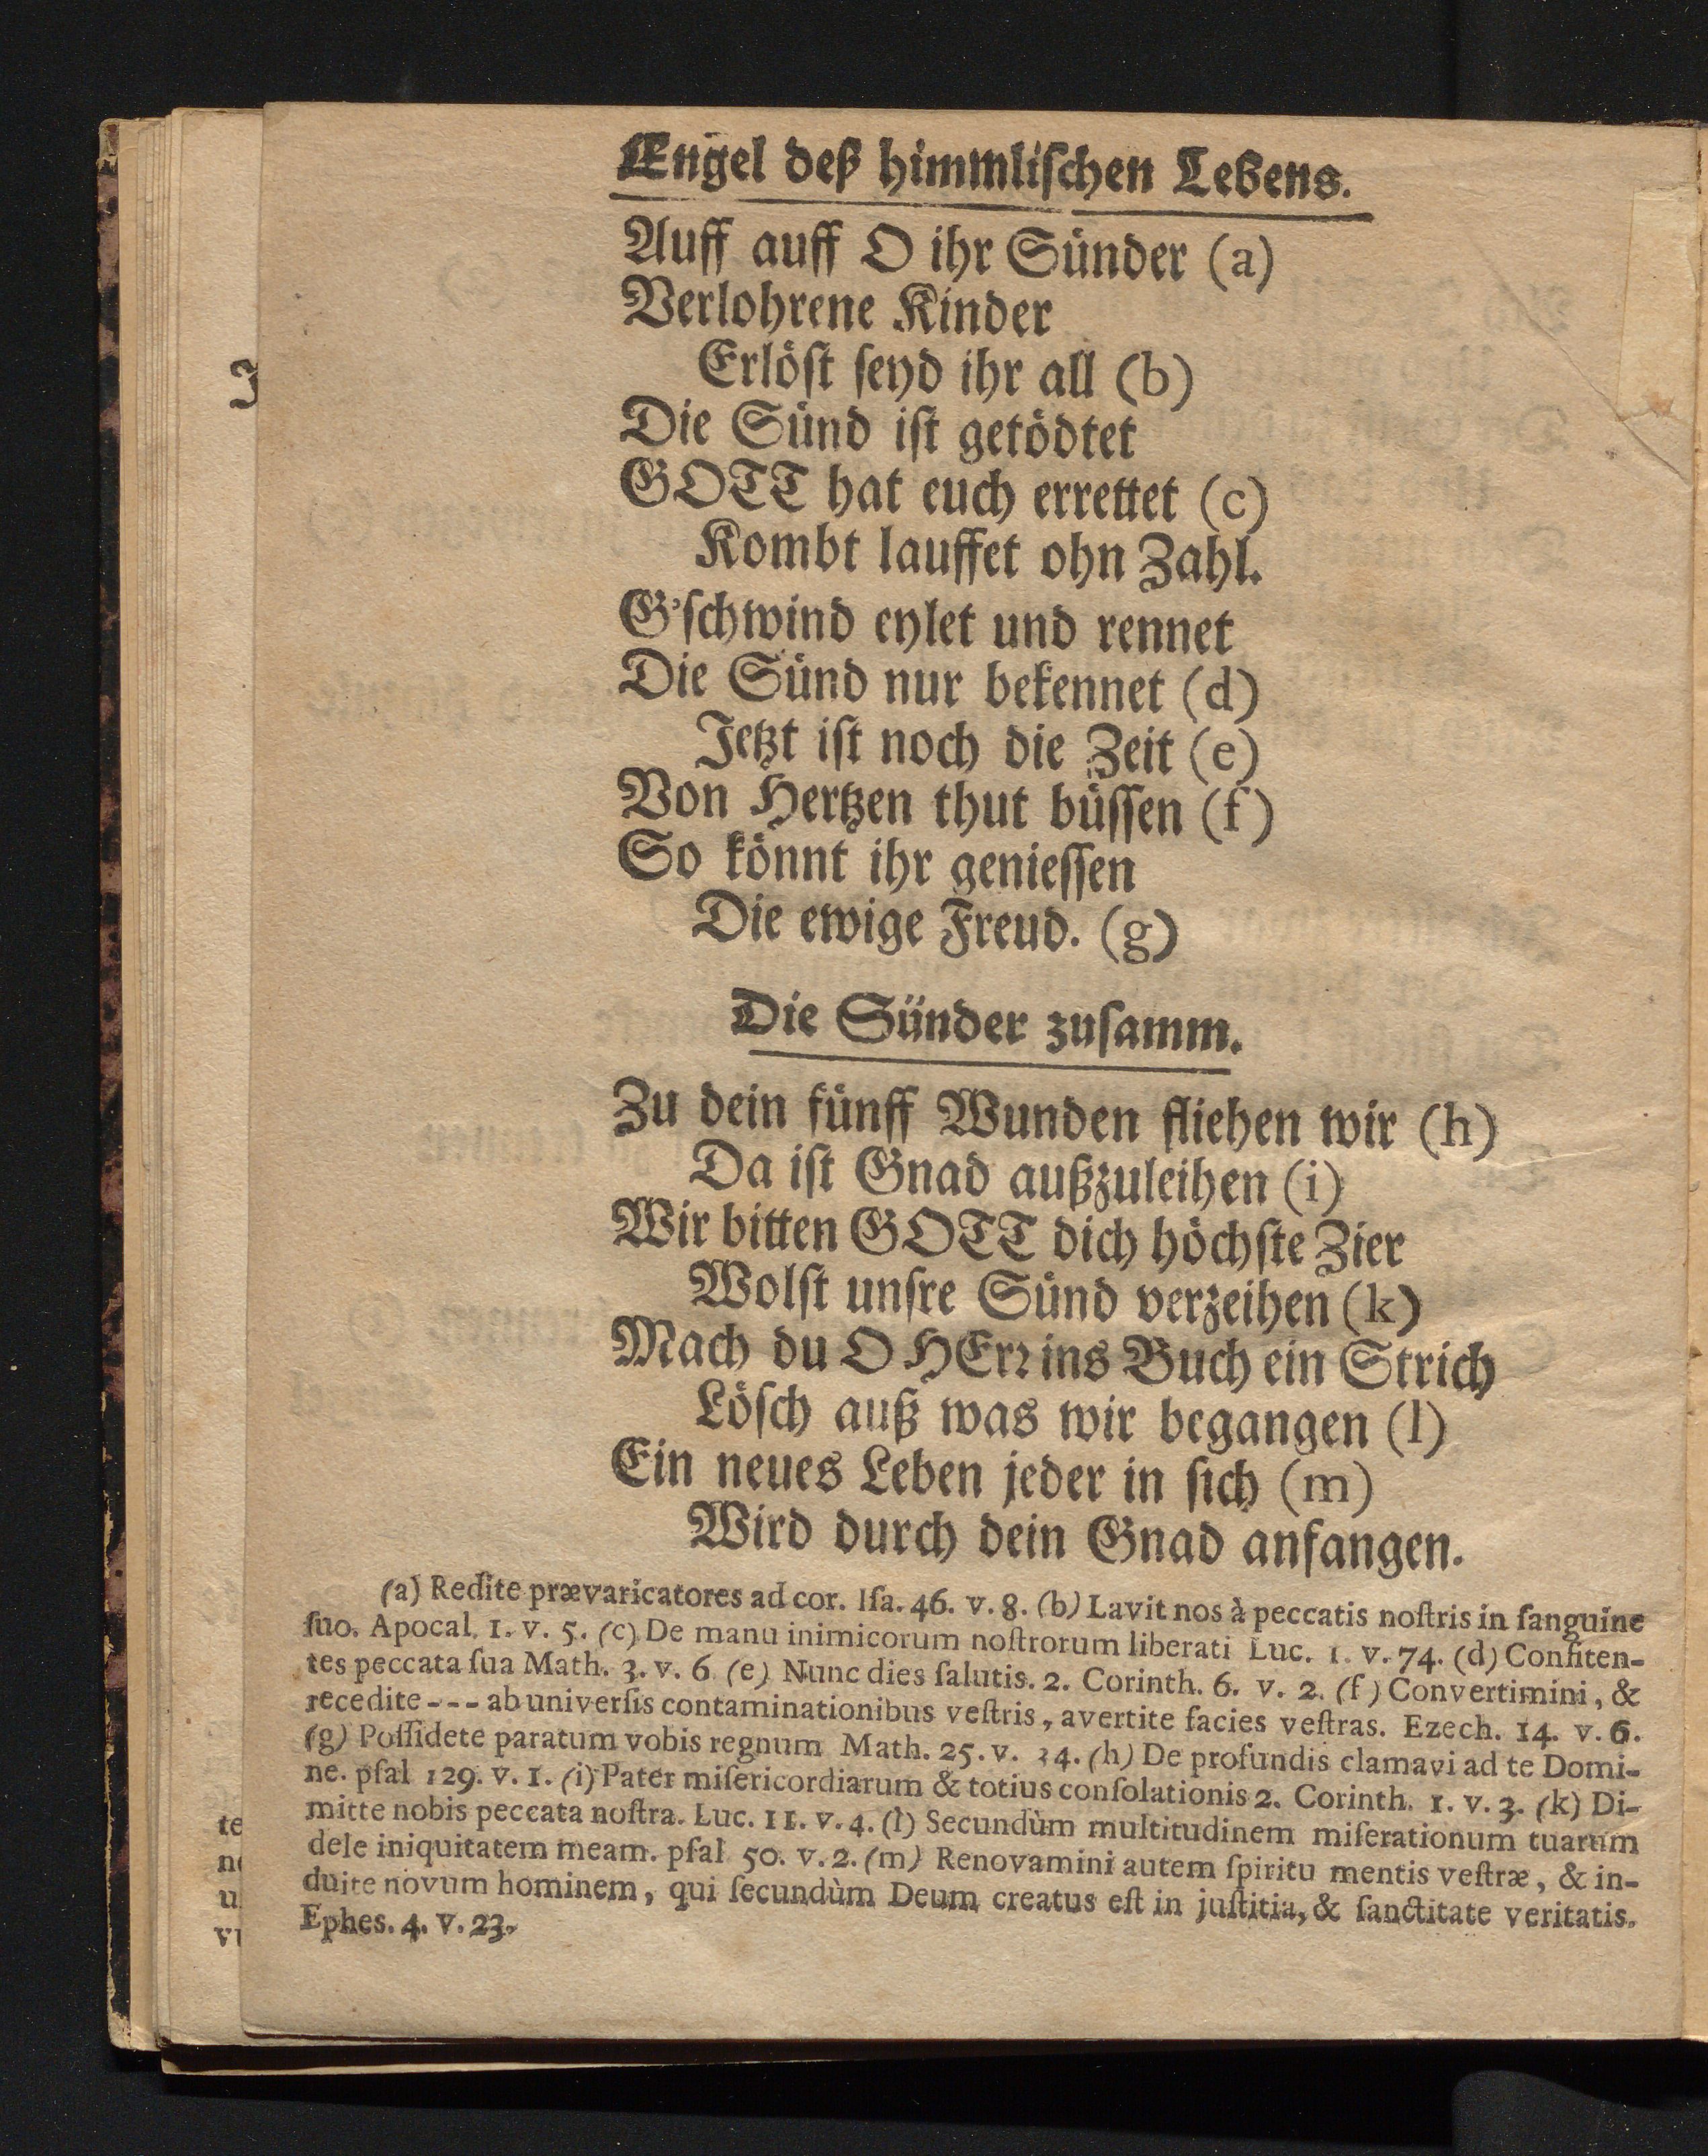 Engel deß himmlischen Lebens.
Auff auff O ihr Sünder (a)
Verlohrene Kinder
Erlöst seyd ihr all (b)
Die Sünd ist getödtet
GOTT hat euch errettet (c)
Kombt lauffet ohn Zahl.
G'schwind eylet und rennet
Die Sünd nur bekennet (d)
Jetzt ist noch die Zeit (e)
Von Hertzen thut büssen (f)
So könnt ihr geniessen
Die ewige Freud. (g)
Die Sünder zusamm.
Zu dein fünff Wunden fliehen wir (h)
Da ist Gnad außzuleihen (i)
Wir bitten GOTT dich höchste Zier
Wolst unsre Sünd verzeihen (k)
Mach du O HErr ins Buch ein Strich
Lösch auß was wir begangen (l)
Ein neues Leben jeder in sich (m)
Wird durch dein Gnad anfangen.
(a) Redite prævaricatores ad cor. Isa. 46. v. 8. (b) Lavit nos à peccatis nostris in sanguine
suo. Apocal. 1. v. 5. (c) De manu inimicorum nostrorum liberati Luc. 1. v. 74. (d) Confiten-
tes peccata sua Math. 3. v. 6. (e) Nunc dies salutis. 2. Corinth. 6. v. 2. (f) Convertimini, &
recedite --- ab universis contaminationibus vestris, avertite facies vestras. Ezech. 14. v. 6.
(g) Possidete paratum vobis regnum Math. 25. v. 34. (h) De profundis clamavi ad te Domi-
ne. psal 129. v. 1. (i) Pater misericordiarum & totius consolationis 2. Corinth. 1. v. 3. (k) Di-
mitte nobis peccata nostra. Luc. 11. v. 4. (l) Secundùm multitudinem miserationum tuarum
dele iniquitatem meam. psal 50. v. 2. (m) Renovamini autem spiritu mentis vestræ, & in-
duite novum hominem, qui secundùm Deum creatus est in justitia, & sanctitate veritatis.
Ephes. 4. v. 23.